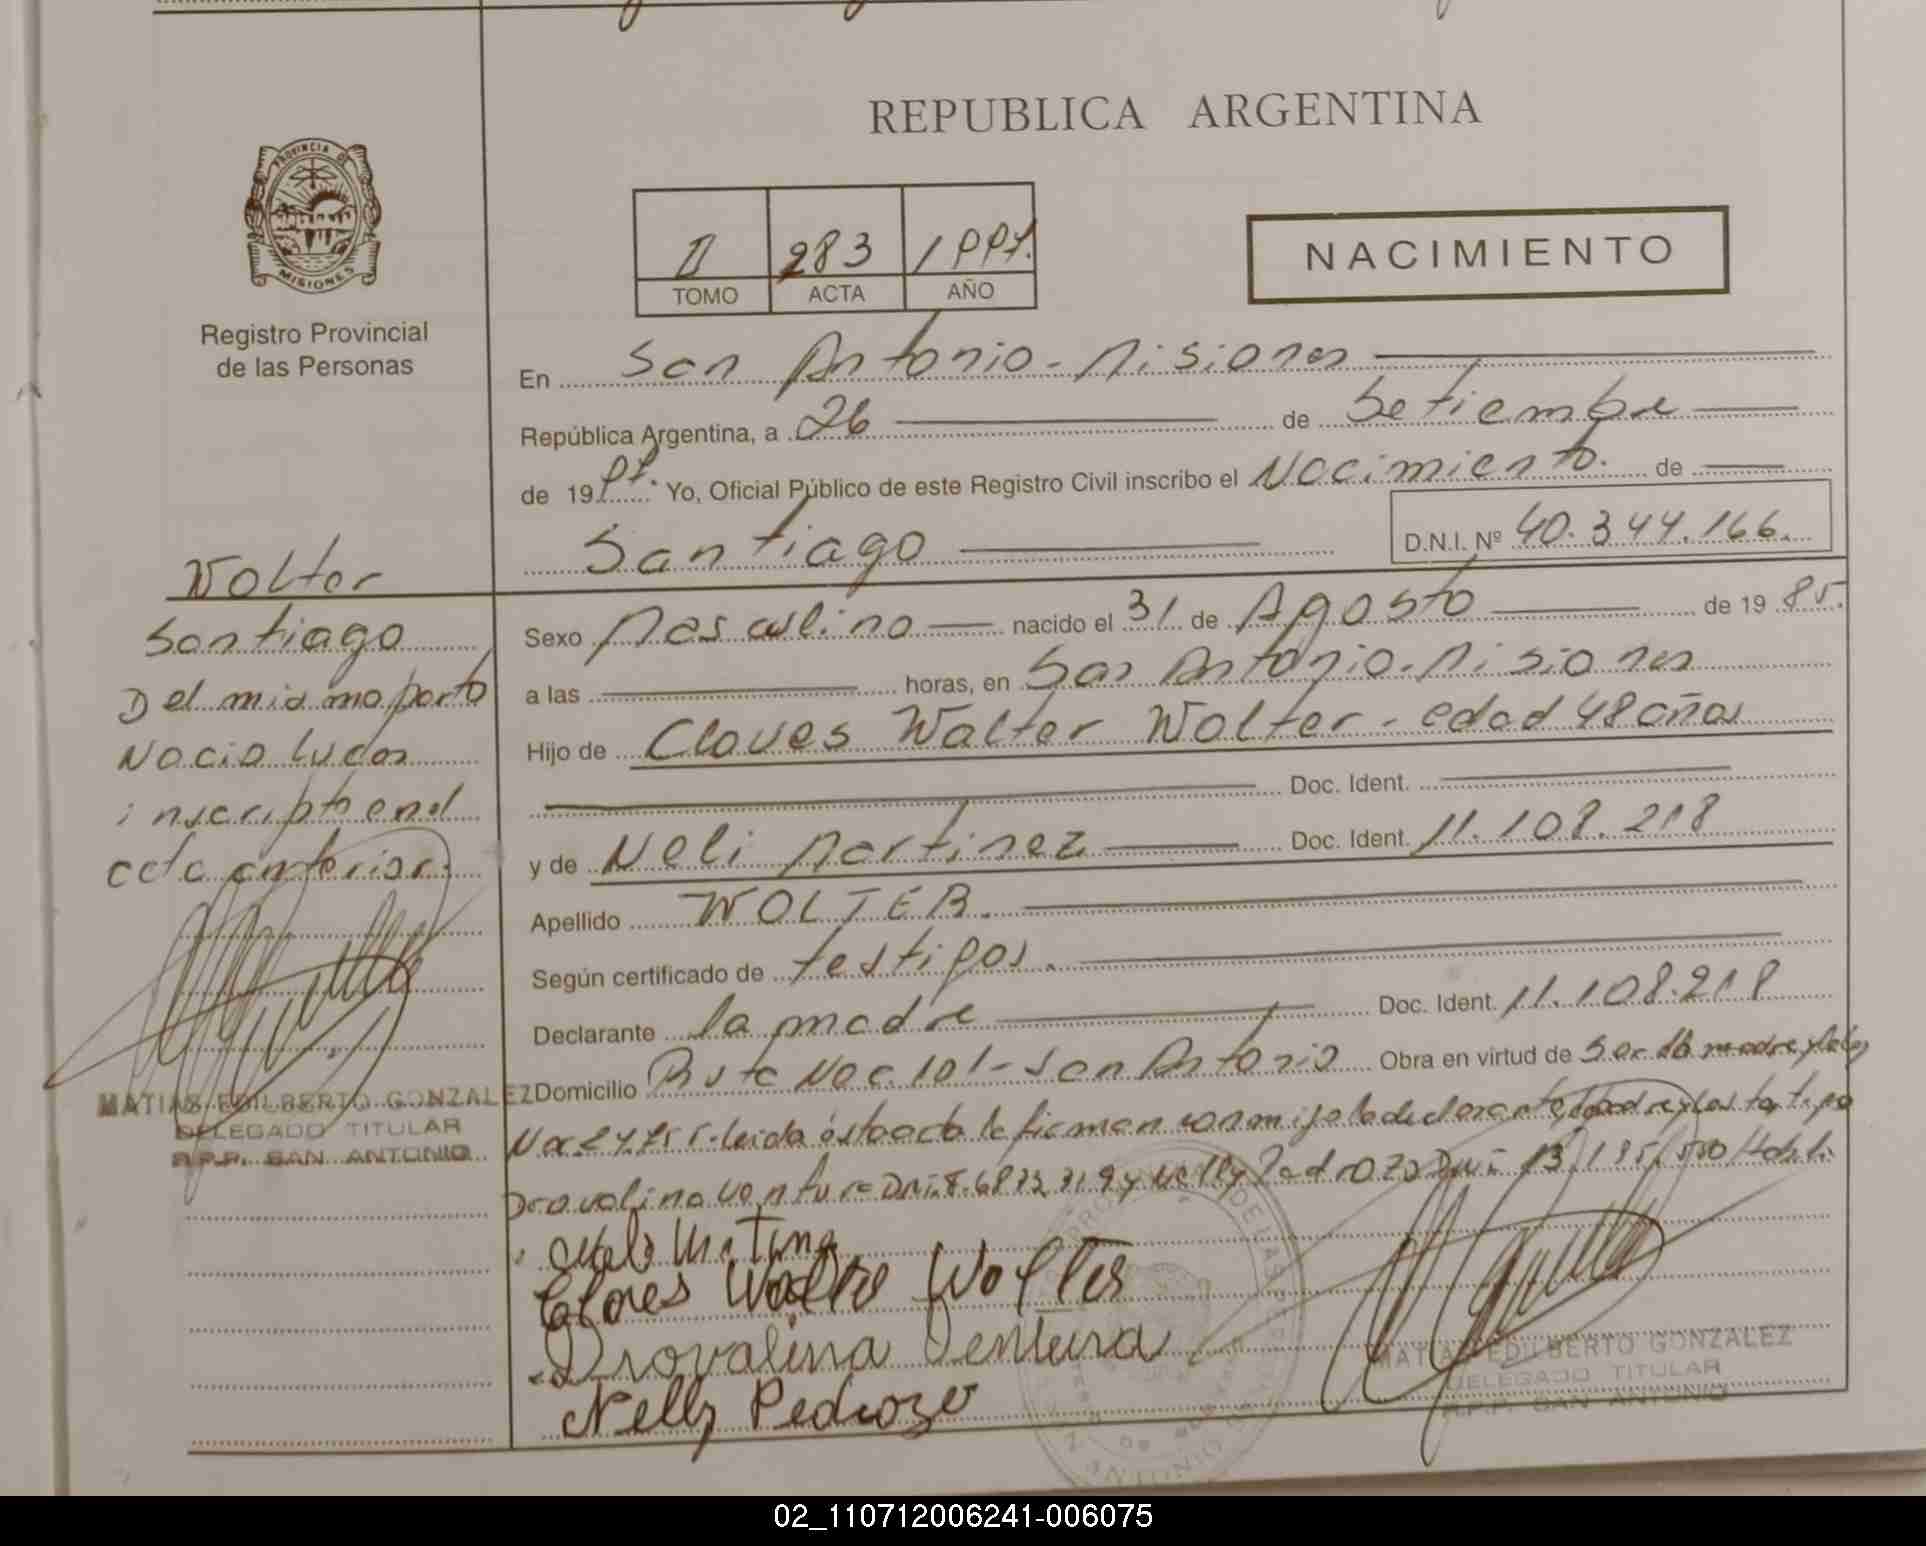 REPUBLICA ARGENTINA
PROVINCIA DE
MISIONES
Registro Provincial
de las Personas
II 283
TOMO ACTA AÑO
NACIMIENTO
En San Antonio - Misiones
República Argentina, a 26 de Setiembre
de 19 Yo, Oficial Público de este Registro Civil inscribo el Nacimiento. de
Santiago D.N.I. Nº 40.344.166.
Wolter
Santiago
Del mismo parto
Nacio Lucas
inscripto en el
acta anterior.
MATIAS EDILBERTO GONZALEZ
DELEGADO TITULAR
R.P.P. SAN ANTONIO
Sexo Masculino nacido el 31 de Agosto de 19 85.
a las horas, en San Antonio - Misiones
Hijo de Cloves Walter Wolter - edad 48 años
Doc. Ident.
y de Neli Martinez Doc. Ident. 11.108.218
Apellido WOLTER.
Según certificado de testigos.
Declarante la madre Doc. Ident. 11.108.218
Domicilio Ruta Nac. 101 - San Antonio Obra en virtud de Ser la madre y la ley
leida esta acta la firman conmigo la declarante, padre y los testigos
Drovalina Ventura y Nelly Pedrozo
Cloves Walter Wolter
Drovalina Ventura
Nelly Pedrozo
MATIAS EDILBERTO GONZALEZ
DELEGADO TITULAR
R.P.P. SAN ANTONIO
02_110712006241-006075